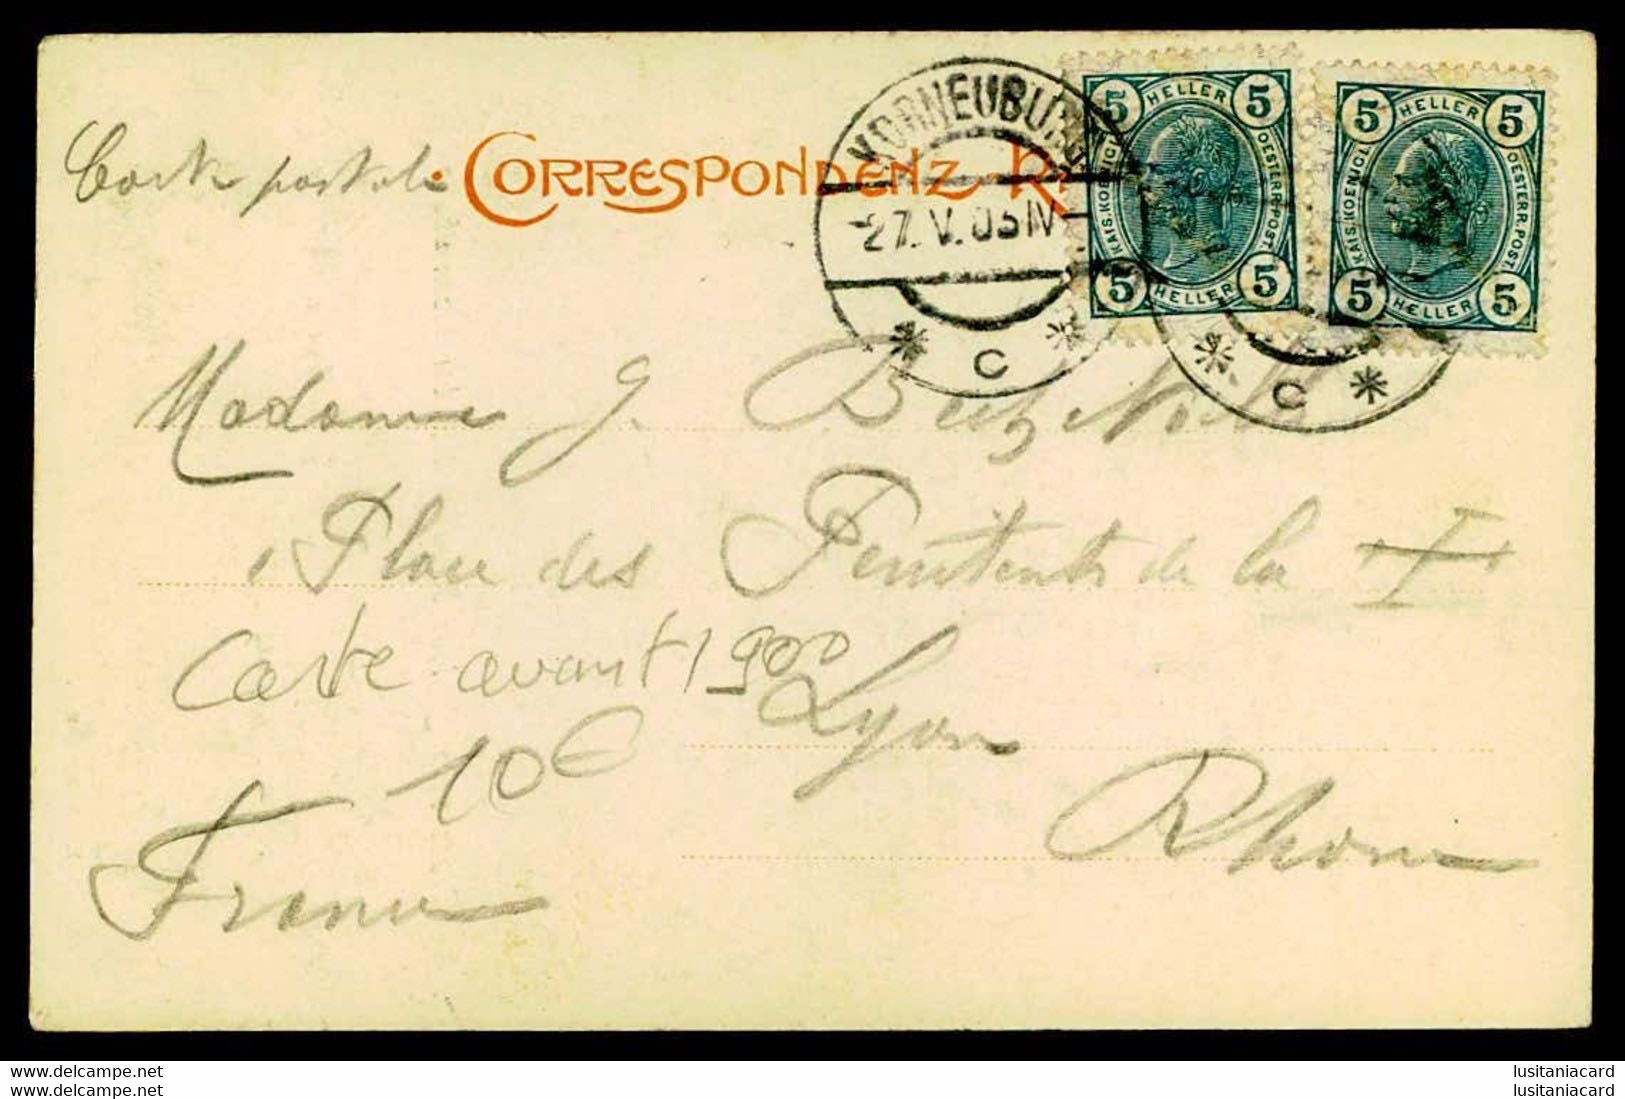 Carte postale
CORRESPONDENZ-K
KORNEUBURG
27.V.05 IV
* C *
* C *
5 HELLER 5
KAIS. KOENIGL.
OESTERR. POST.
5 HELLER 5
5 HELLER 5
KAIS. KOENIGL.
OESTERR. POST.
5 HELLER 5
Madame J.
Place des Penitents de la
Carte avant 1900
Lyon
10€
Rhone
France
www.delcampe.net
www.delcampe.net
lusitaniacard
lusitaniacard